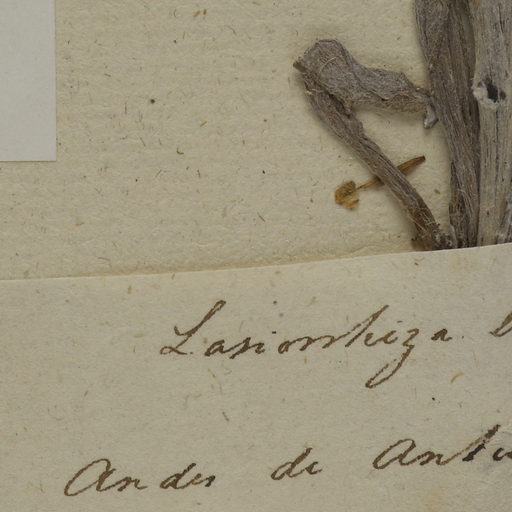 Lasiorrhiza
Andes de